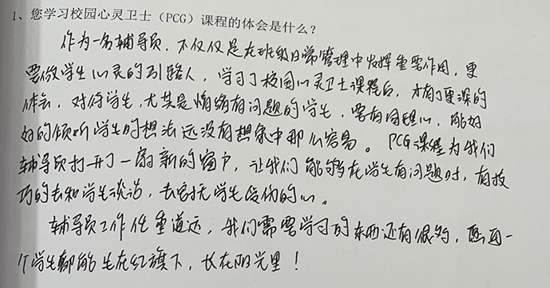 1、您学习校园心灵卫士（PCG）课程的体会是什么？
作为一名辅导员，不仅仅是在班级日常管理中发挥重要作用，更
要做学生心灵的引路人，学习了校园心灵卫士课程后，才有了更深的
体会，对待学生，尤其是情绪有问题的学生，要有同理心，能好
好的倾听学生的想法远没有想象中那么容易。PCG课程为我们
辅导员打开了一扇新的窗户，让我们能够在学生有问题时，有技
巧的去和学生谈话，去安抚学生受伤的心。
辅导员工作任重道远，我们需要学习的东西还有很多，愿每一
个学生都能生在红旗下，长在阳光里！